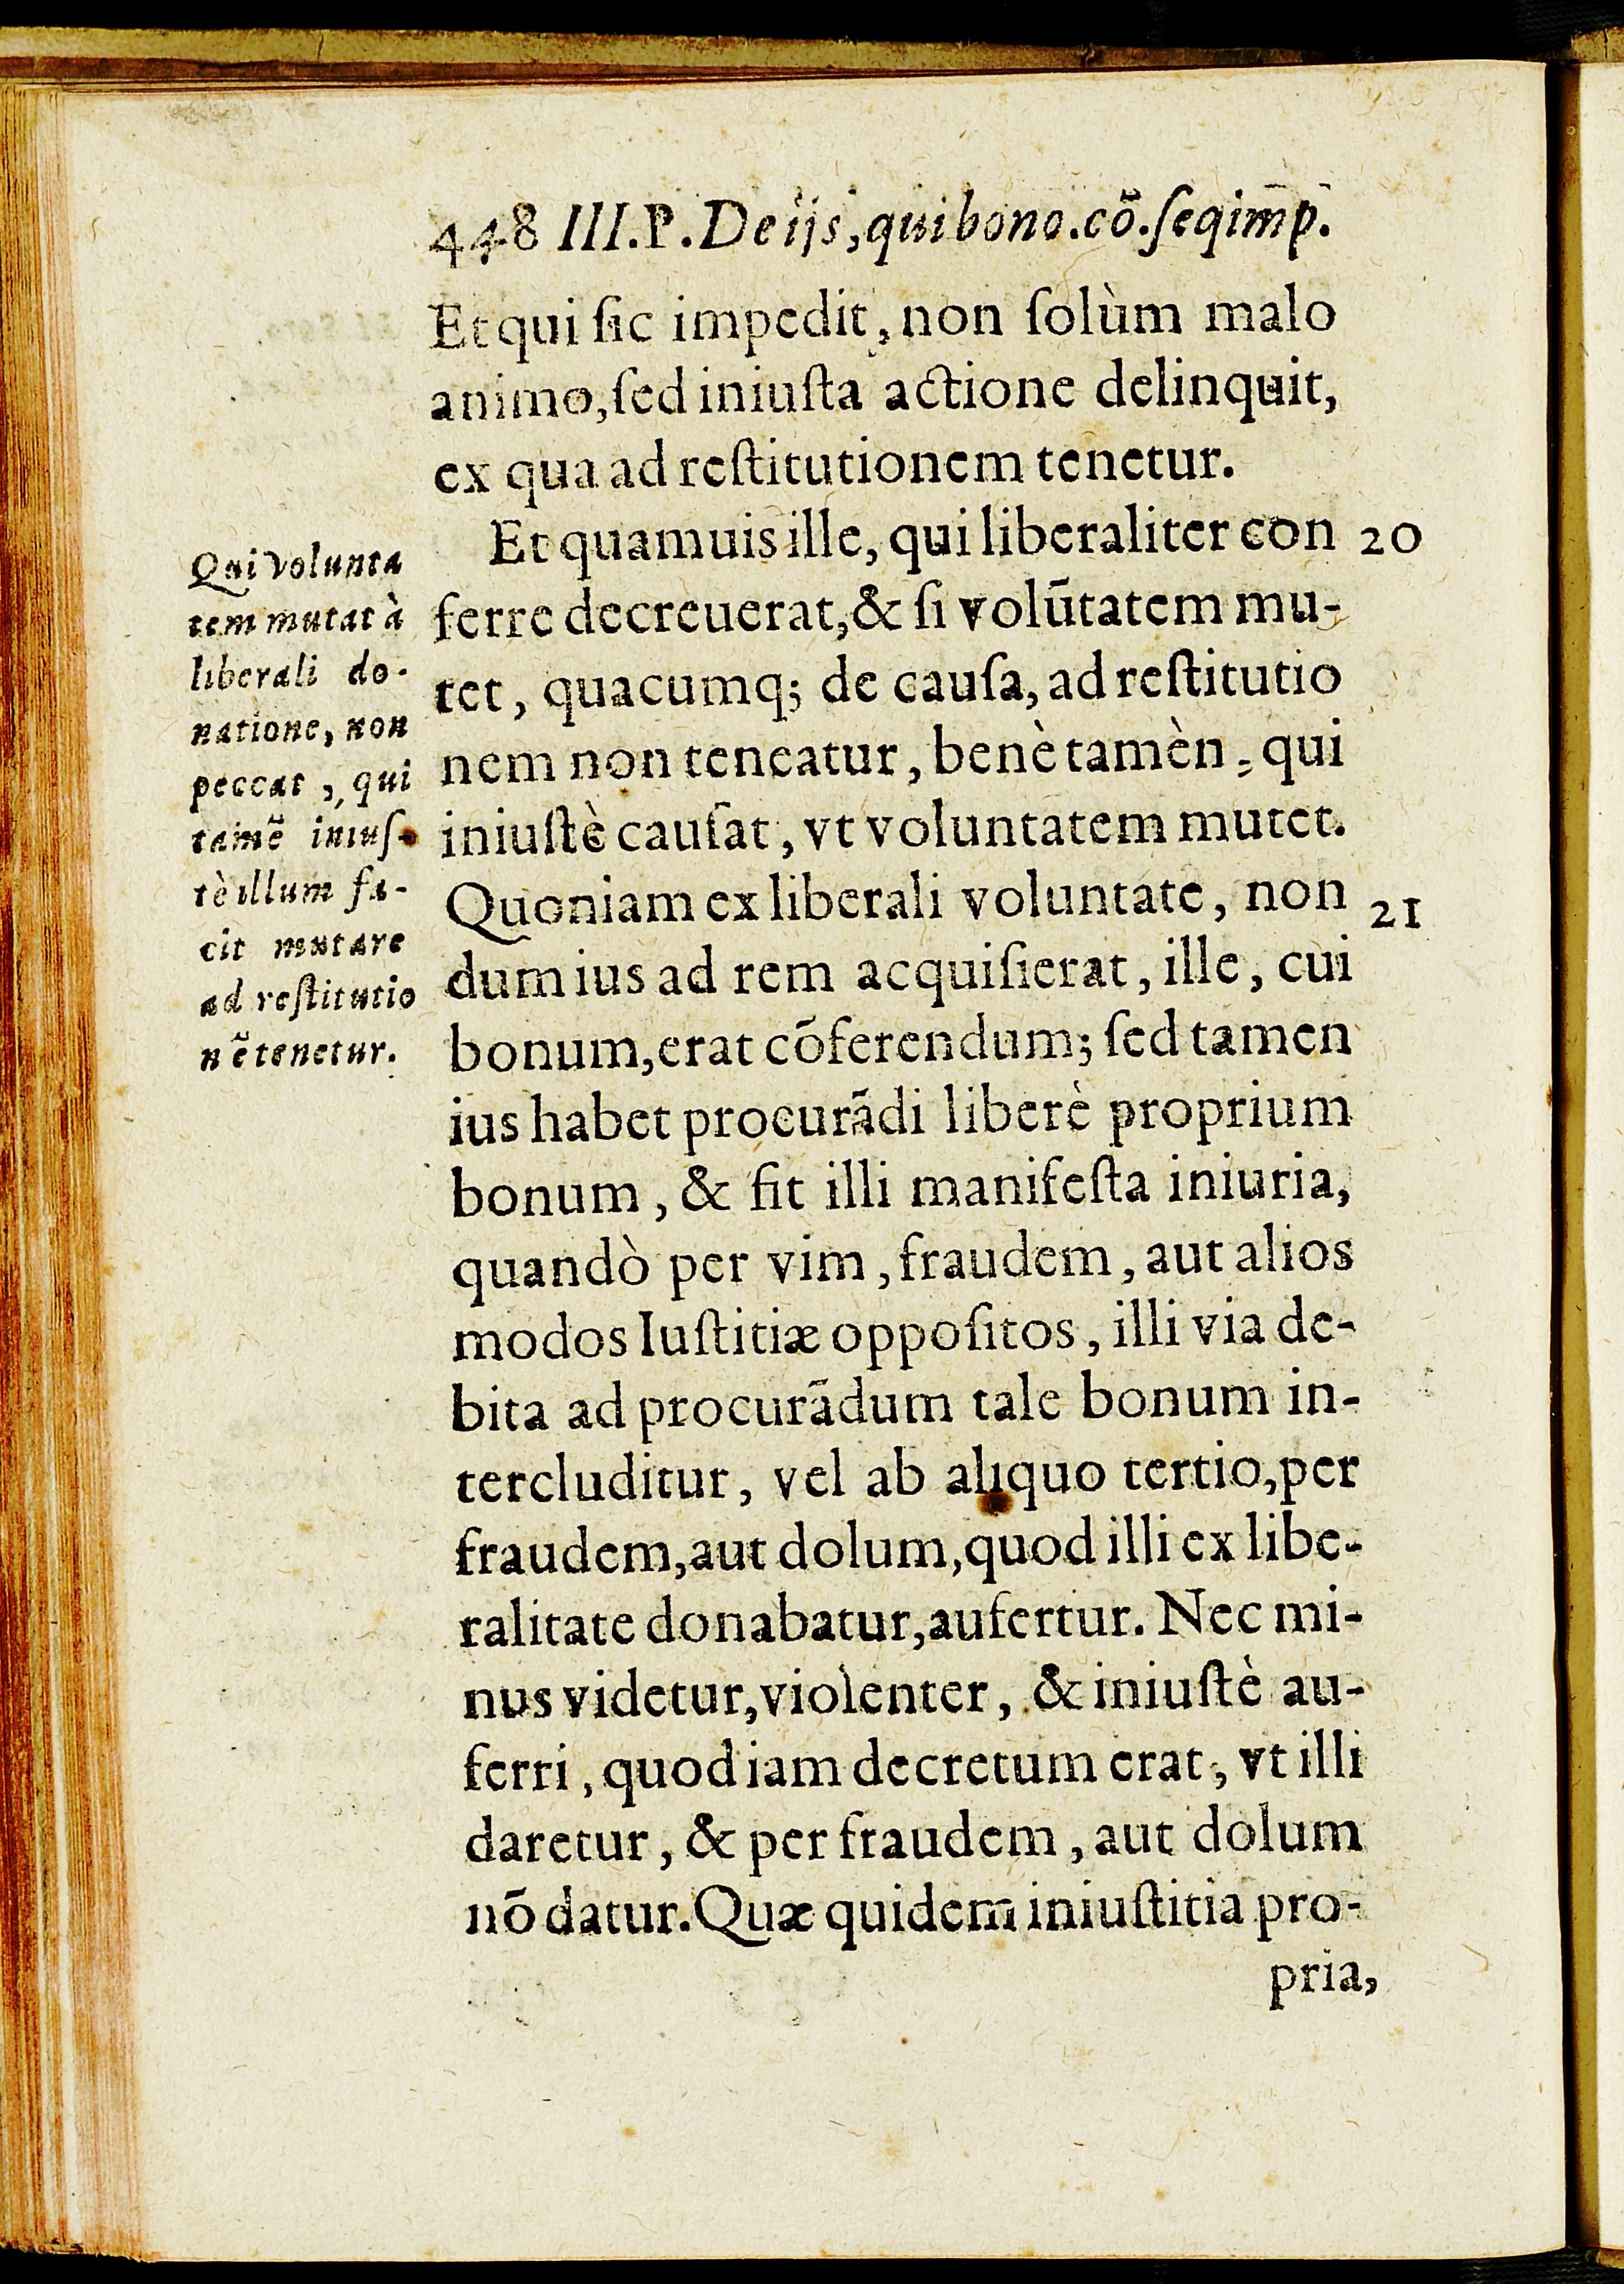 448 III.P. De ijs, qui bono.cō.ſeqim̄p̄.
Et qui ſic impedit, non ſolùm malo
animo, ſed iniuſta actione delinquit,
ex qua ad reſtitutionem tenetur.
Et quamuis ille, qui liberaliter con 20
ferre decreuerat, & ſi volūtatem mu-
tet, quacumq; de cauſa, ad reſtitutio
nem non teneatur, benè tamèn, qui
iniuſtè cauſat, vt voluntatem mutet.
Quoniam ex liberali voluntate, non 21
dum ius ad rem acquiſierat, ille, cui
bonum, erat cōferendum; ſed tamen
ius habet procurādi liberè proprium
bonum, & fit illi manifeſta iniuria,
quandò per vim, fraudem, aut alios
modos Iuſtitiæ oppoſitos, illi via de-
bita ad procurādum tale bonum in-
tercluditur, vel ab aliquo tertio, per
fraudem, aut dolum, quod illi ex libe-
ralitate donabatur, aufertur. Nec mi-
nus videtur, violenter, & iniuſtè au-
ferri, quod iam decretum erat, vt illi
daretur, & per fraudem, aut dolum
nō datur. Quæ quidem iniuſtitia pro-
pria,
Qui volunta
tem mutat à
liberali do-
natione, non
peccat, qui
tamē iniuſ-
tè illum fa-
cit mutare
ad reſtitutio
nē tenetur.